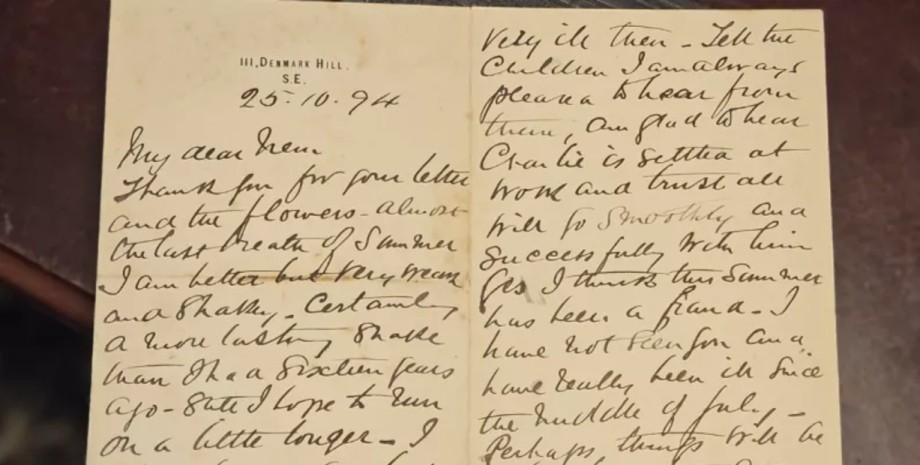 111, DENMARK HILL.
S.E.
25.10.94
My dear
Thank you for your letter
and the flowers - almost
the last breath of Summer
I am better but very weak
and Shaky - Certainly
a more lasting Shake
than I had Sixteen years
ago - Still I hope to run
on a little longer - I
very ill then - Tell the
Children I am always
pleased to hear from
them, am glad to hear
Charlie is settled at
work and trust all
will go Smoothly and
successfully with him
Yes I think this Summer
has been a fraud - I
have not seen you and
have really been ill since
the middle of July -
Perhaps, things will be